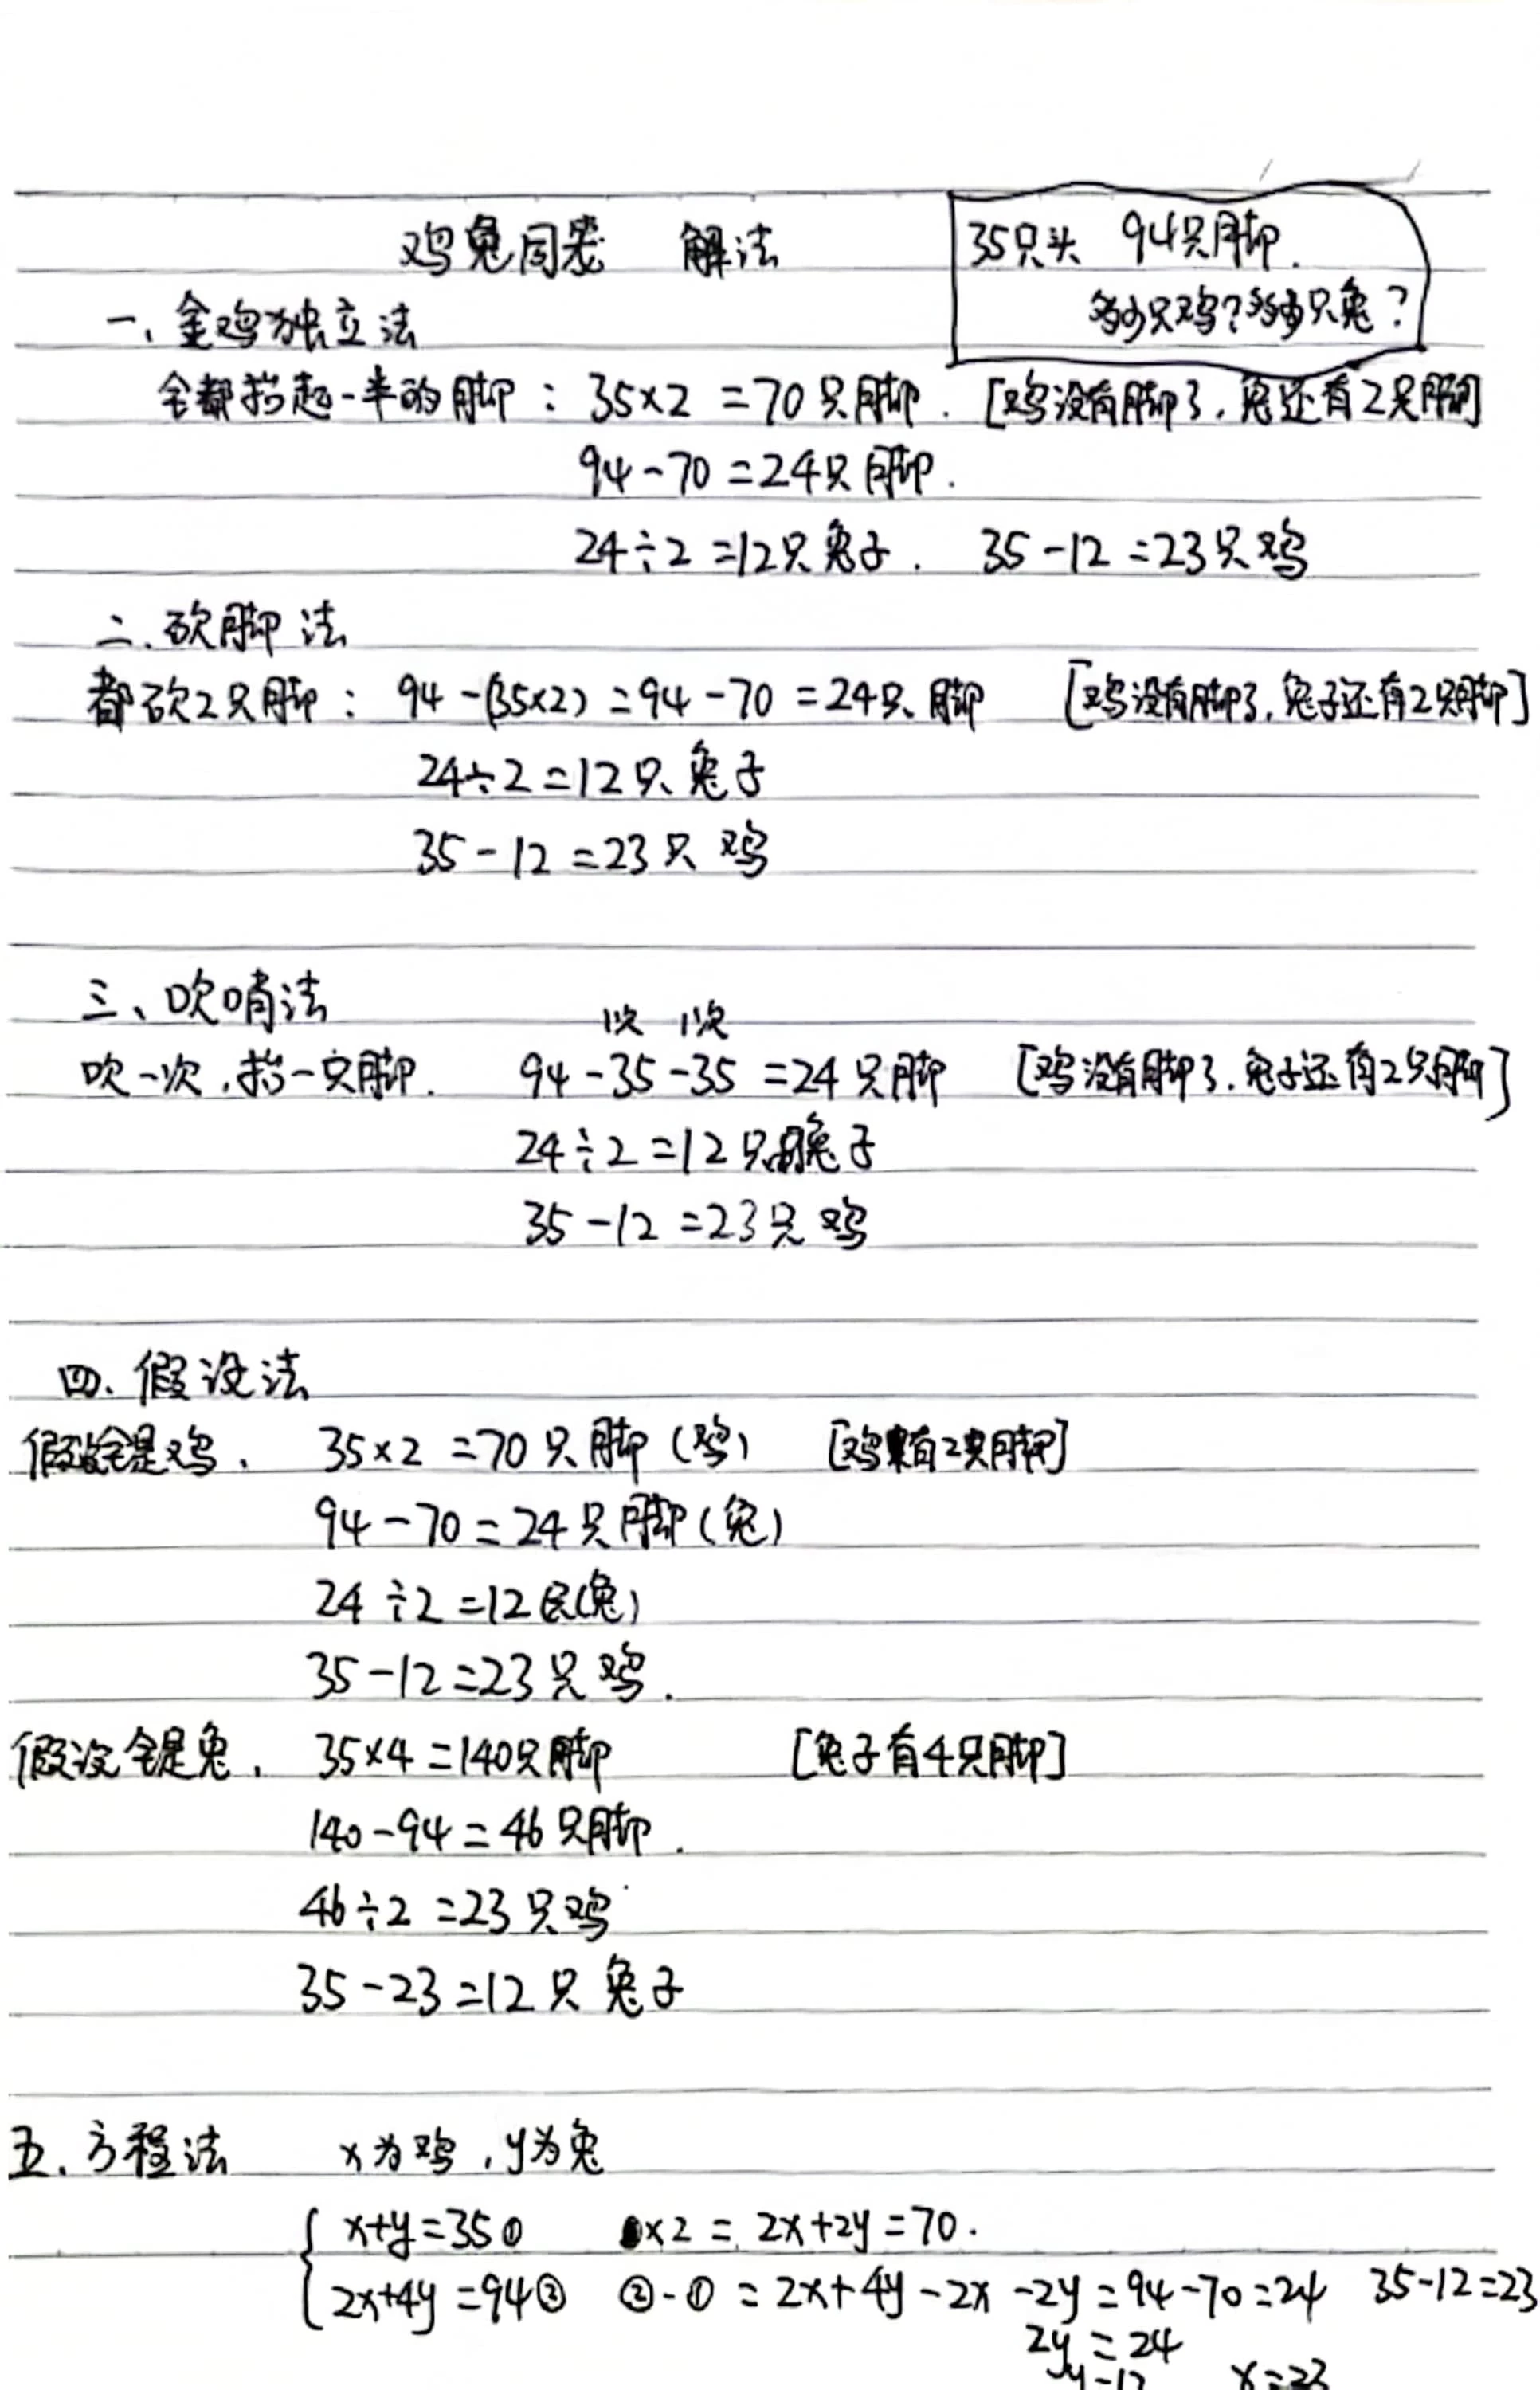 鸡兔同笼 解法
35只头 94只脚.
多少只鸡?多少只兔?
一、金鸡独立法
全都抬起一半的脚:35×2=70只脚.[鸡没有脚了,兔还有2只脚]
94-70=24只脚.
24÷2=12只兔子. 35-12=23只鸡
二.砍脚法
都砍2只脚:94-(35×2)=94-70=24只脚 [鸡没有脚了,兔子还有2只脚]
24÷2=12只兔子
35-12=23只鸡
三、吹哨法
1次 1次
吹一次,抬一只脚. 94-35-35=24只脚 [鸡没有脚了.兔子还有2只脚]
24÷2=12只兔子
35-12=23只鸡
四.假设法
假设全是鸡, 35×2=70只脚(鸡) [鸡有2只脚]
94-70=24只脚(兔)
24÷2=12只(兔)
35-12=23只鸡.
假设全是兔, 35×4=140只脚 [兔子有4只脚]
140-94=46只脚.
46÷2=23只鸡
35-23=12只兔子
五.方程法 x为鸡,y为兔
x+y=35① ×2=2x+2y=70.
2x+4y=94② ②-①=2x+4y-2x-2y=94-70=24 35-12=23
2y=24
y=12 x=23